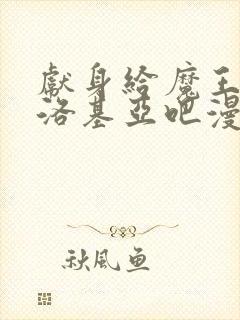 獻身給魔王
洛基亞吧漫
秋風魚